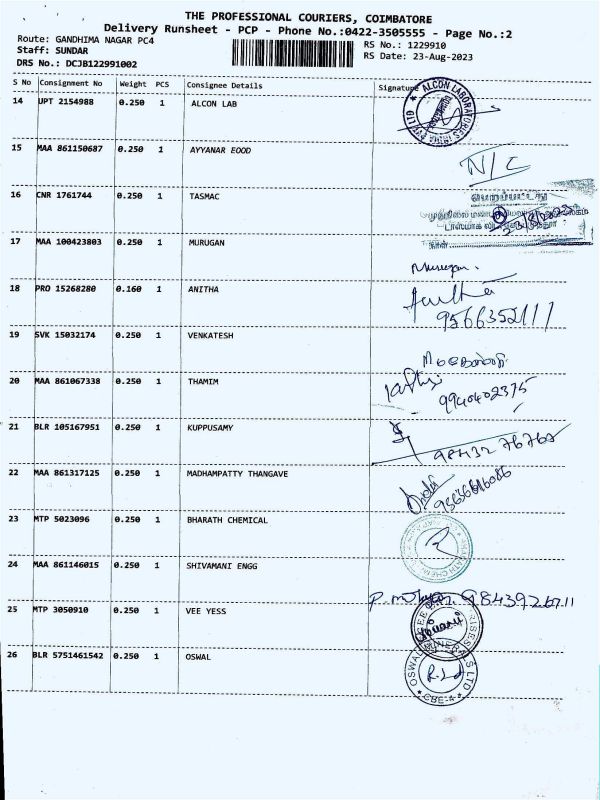 THE PROFESSIONAL COURIERS, COIMBATORE
Delivery Runsheet - PCP - Phone No.:0422-3505555 - Page No.:2
Route: GANDHIMA NAGAR PC4
RS No.: 1229910
Staff: SUNDAR
RS Date: 23-Aug-2023
DRS No.: DCJB122991002
S No Consignment No Weight PCS Consignee Details Signature
14 UPT 2154988 0.250 1 ALCON LAB
15 MAA 861150687 0.250 1 AYYANAR EOOD N/C
16 CNR 1761744 0.250 1 TASMAC
17 MAA 100423803 0.250 1 MURUGAN Murugan.
18 PRO 15268280 0.160 1 ANITHA Anitha
9566352111
19 SVK 15032174 0.250 1 VENKATESH
20 MAA 861067338 0.250 1 THAMIM 9940402375
21 BLR 105167951 0.250 1 KUPPUSAMY 98432 76767
22 MAA 861317125 0.250 1 MADHAMPATTY THANGAVE
23 MTP 5023096 0.250 1 BHARATH CHEMICAL
24 MAA 861146015 0.250 1 SHIVAMANI ENGG
25 MTP 3050910 0.250 1 VEE YESS
26 BLR 5751461542 0.250 1 OSWAL